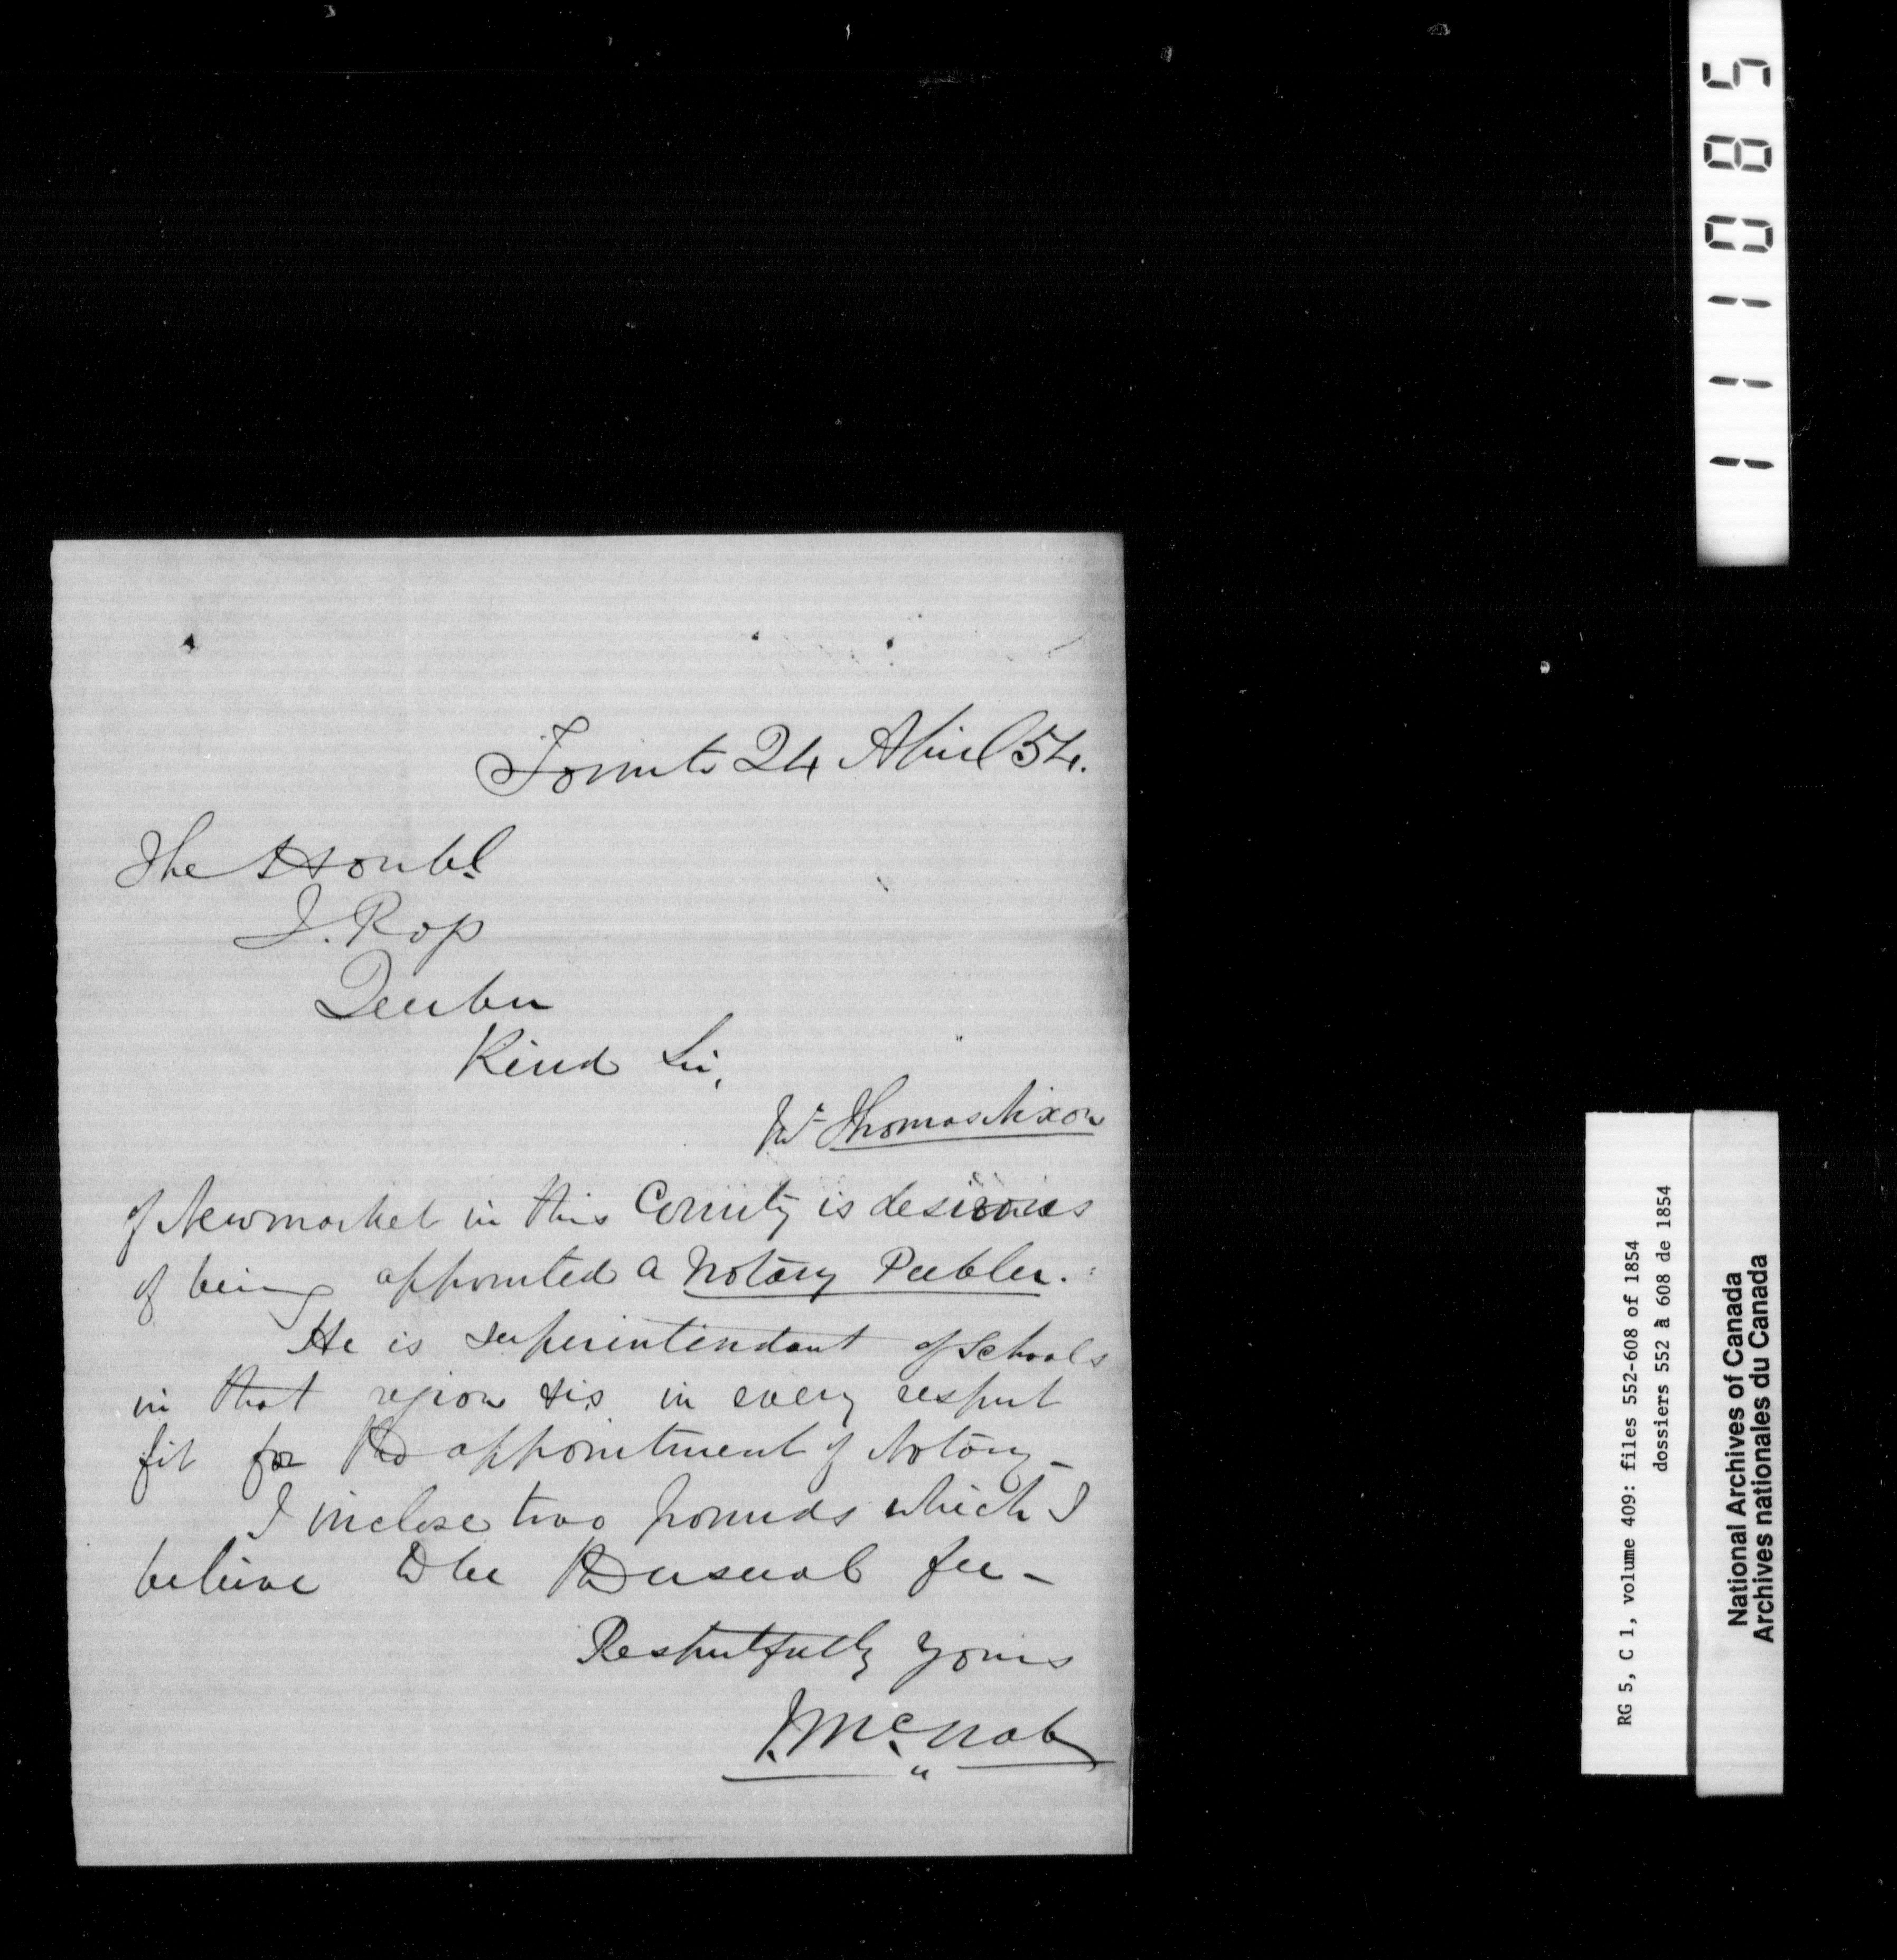 Toronto 24 April 54.
The Honbl.
J. Ross
Quebec
Kind Sir,
Mr Thomas Nixon
of Newmarket in this County is desirous
of being appointed a Notary Public.
He is Superintendant of Schools
in that region & is in every respect
fit for the appointment of Notary -
I inclose two pounds which I
believe to be the usual fee -
Respectfully yours
J. McNab
111085
RG 5, C 1, volume 409: files 552-608 of 1854
dossiers 552 à 608 de 1854
National Archives of Canada
Archives nationales du Canada